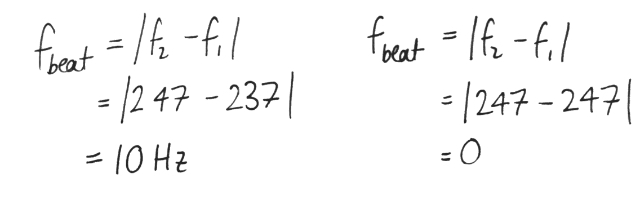 f_beat = |f_2 - f_1|
= |247 - 237|
= 10 Hz
f_beat = |f_2 - f_1|
= |247 - 247|
= 0